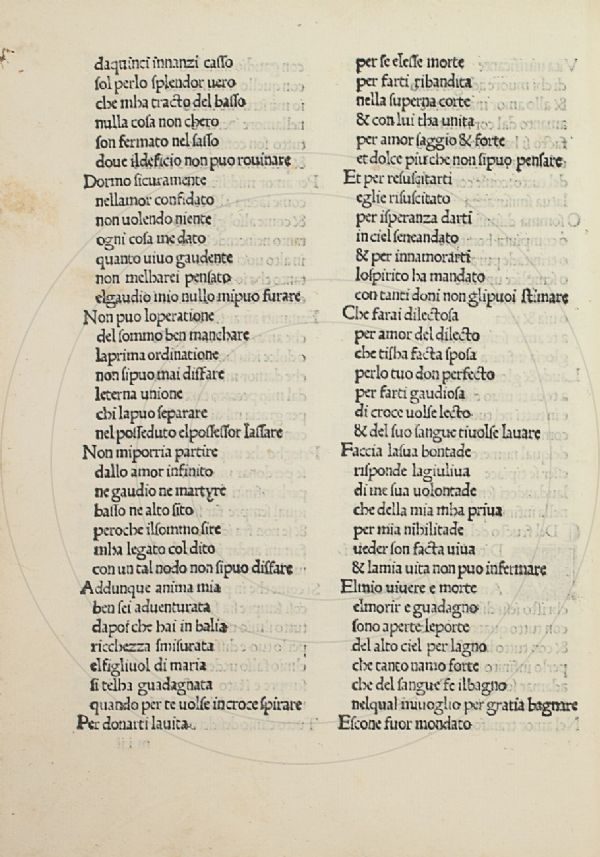 daquinci innanzi casso
sol perlo splendor uero
che mba tracto del basso
nulla cosa non chero
son fermato nel sasso
doue ildeficio non puo rouinare
Dormo sicuramente
nellamor confidato
non uolendo niente
ogni cosa me dato
quanto uiuo gaudente
non melbarei pensato
elgaudio mio nullo mipuo furare
Non puo loperatione
del sommo ben manchare
laprima ordinatione
non sipuo mai disfare
leterna unione
chi lapuo separare
nel posseduto elpossessor lassare
Non miporria partire
dallo amor infinito
ne gaudio ne martyre
basso ne alto sito
peroche ilsommo sire
mba legato col dito
con un tal nodo non sipuo disfare
Addunque anima mia
ben sei aduenturata
dapoi che hai in balia
ricchezza smisurata
elfigliuol di maria
si telba guadagnata
quando per te uolse incroce spirare
Per donarti lauita
per se elesse morte
per farti ribandita
nella superna corte
& con lui tha unita
per amor saggio & forte
et dolce piu che non sipuo pensare
Et per resuscitarti
eglie risuscitato
per isperanza darti
in ciel seneandato
& per innamorarti
lospirito ha mandato
con tanti doni non glipuoi stimare
Che farai dilectosa
per amor del dilecto
che tisba facta sposa
perlo tuo don perfecto
per farti gaudiosa
di croce uolse lecto
& del suo sangue tiuolse lauare
Faccia lasua bontade
risponde lagiuliua
di me sua uolontade
che della mia mba priua
per mia nibilitade
ueder son facta uiua
& lamia uita non puo infermare
Elmio uiuere e morte
elmorir e guadagno
sono aperte leporte
del alto ciel per lagno
che tanto namo forte
che del sangue fe ilbagno
nelqual miuoglio per gratia bagnare
Escone fuor mondato